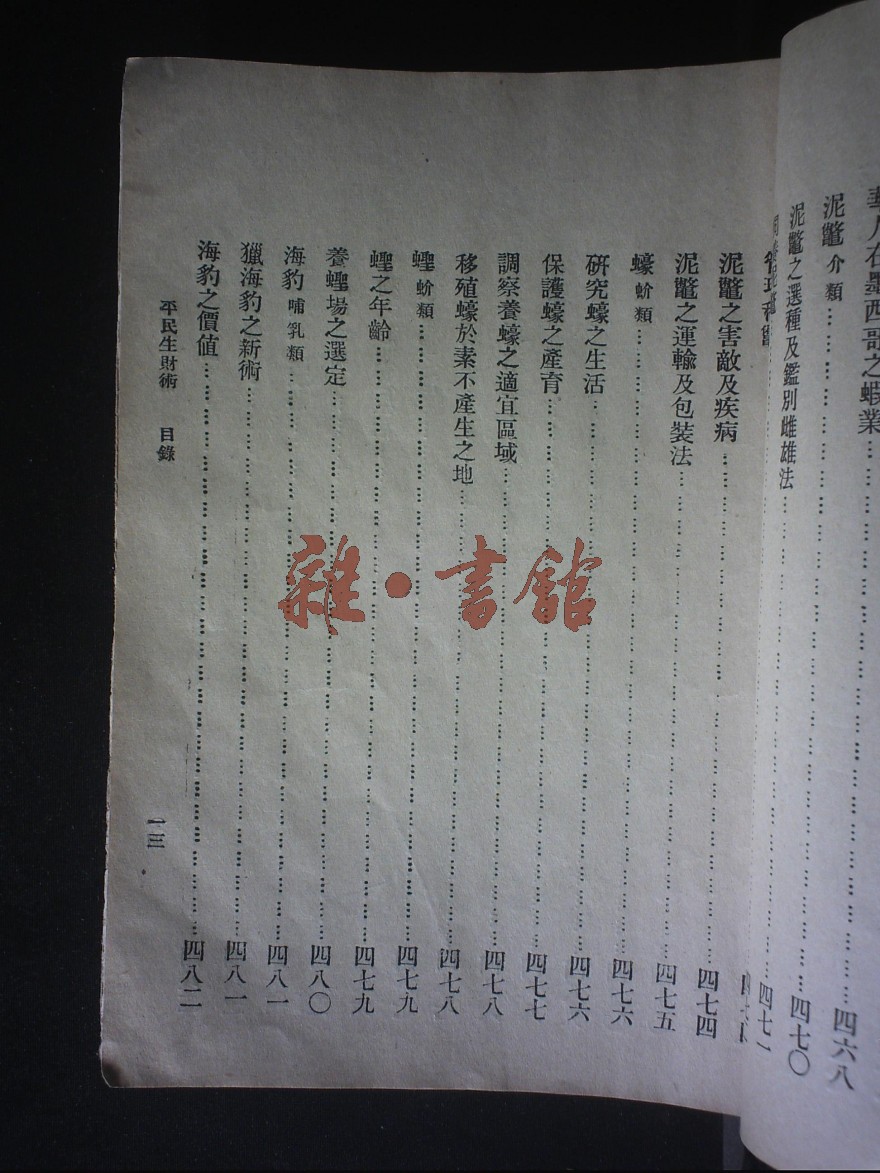 華人在墨西哥之蝦業……四六八
泥鼈介類……四七〇
泥鼈之選種及鑑別雌雄法……四七一
泥鼈之害敵及疾病……四七四
泥鼈之運輸及包裝法……四七五
蠔蚧類……四七六
研究蠔之生活……四七六
保護蠔之產育……四七七
調察養蠔之適宜區域……四七八
移殖蠔於素不產生之地……四七八
蟶蚧類……四七九
蟶之年齡……四七九
養蟶場之選定……四八〇
海豹哺乳類……四八一
獵海豹之新術……四八一
海豹之價値……四八二
平民生財術 目錄
一三
雜·書館